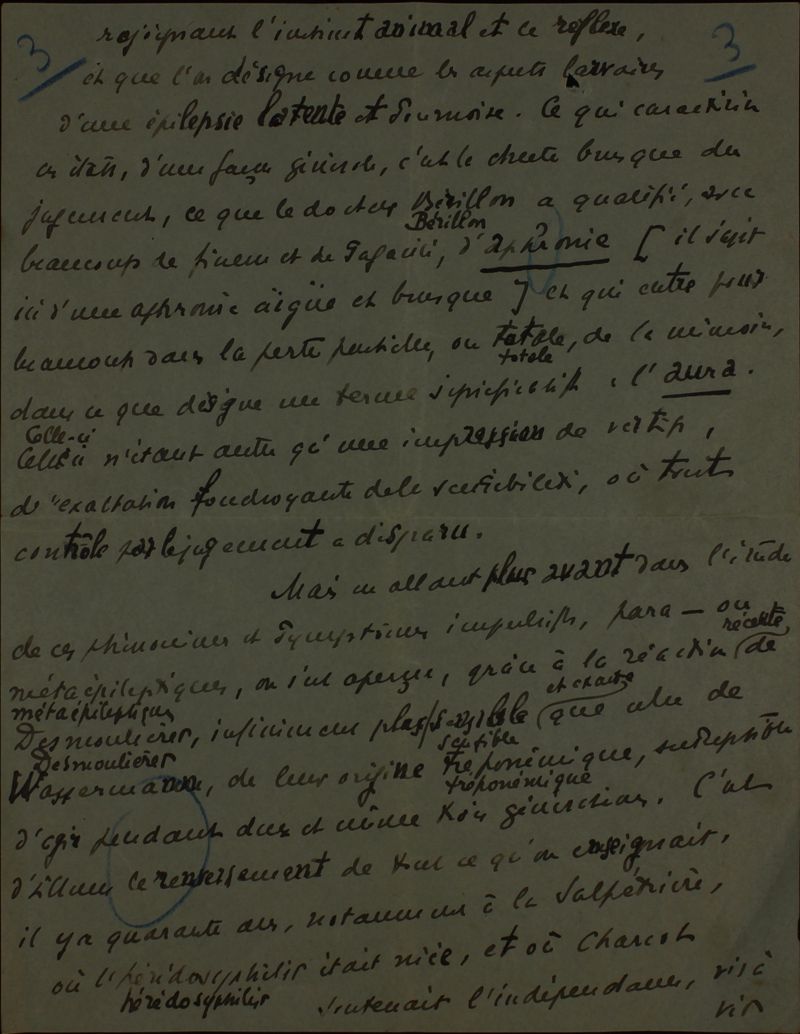 3 3
rejoignant l'instinct animal et le reflexe,
et que l'on désigne comme les aspects larvaires
d'une épilepsie latente et sournoise. Ce qui caractérise
ces états, d'une façon générale, c'est la chute brusque du
jugement, ce que le docteur Bérillon a qualifié, avec
Bérillon
beaucoup de finesse et de sagacité, d'aphronie [ il s'agit
ici d'une aphronie aigüe et brusque ] et qui entre pour
beaucoup dans la perte partielle, ou totale, de la mémoire,
totale
dans ce que désigne un terme significatif : l'aura.
Celle-ci
Celle-ci n'étant autre qu'une impression de vertige,
d'exaltation foudroyante de la sensibilité, où tout
contrôle par le jugement a disparu.
Mais en allant plus avant dans l'étude
de ces phénomènes et symptômes impulsifs, para — ou
métaépileptiques, on s'est aperçu, grâce à la réaction (de
récente
métaépileptiques
Desmoulières, infiniment plus sensible (que celle de
et exacte
Desmoulières
sensible
Wassermann, de leur origine tréponémique, susceptible
tréponémique
d'agir pendant deux et même trois générations. C'est
d'ailleurs le renversement de tout ce qu'on enseignait,
il y a quarante ans, notamment à la Salpêtrière,
où l'hérédosyphilis était niée, et où Charcot
hérédosyphilis
soutenait l'indépendance, vis à
vis